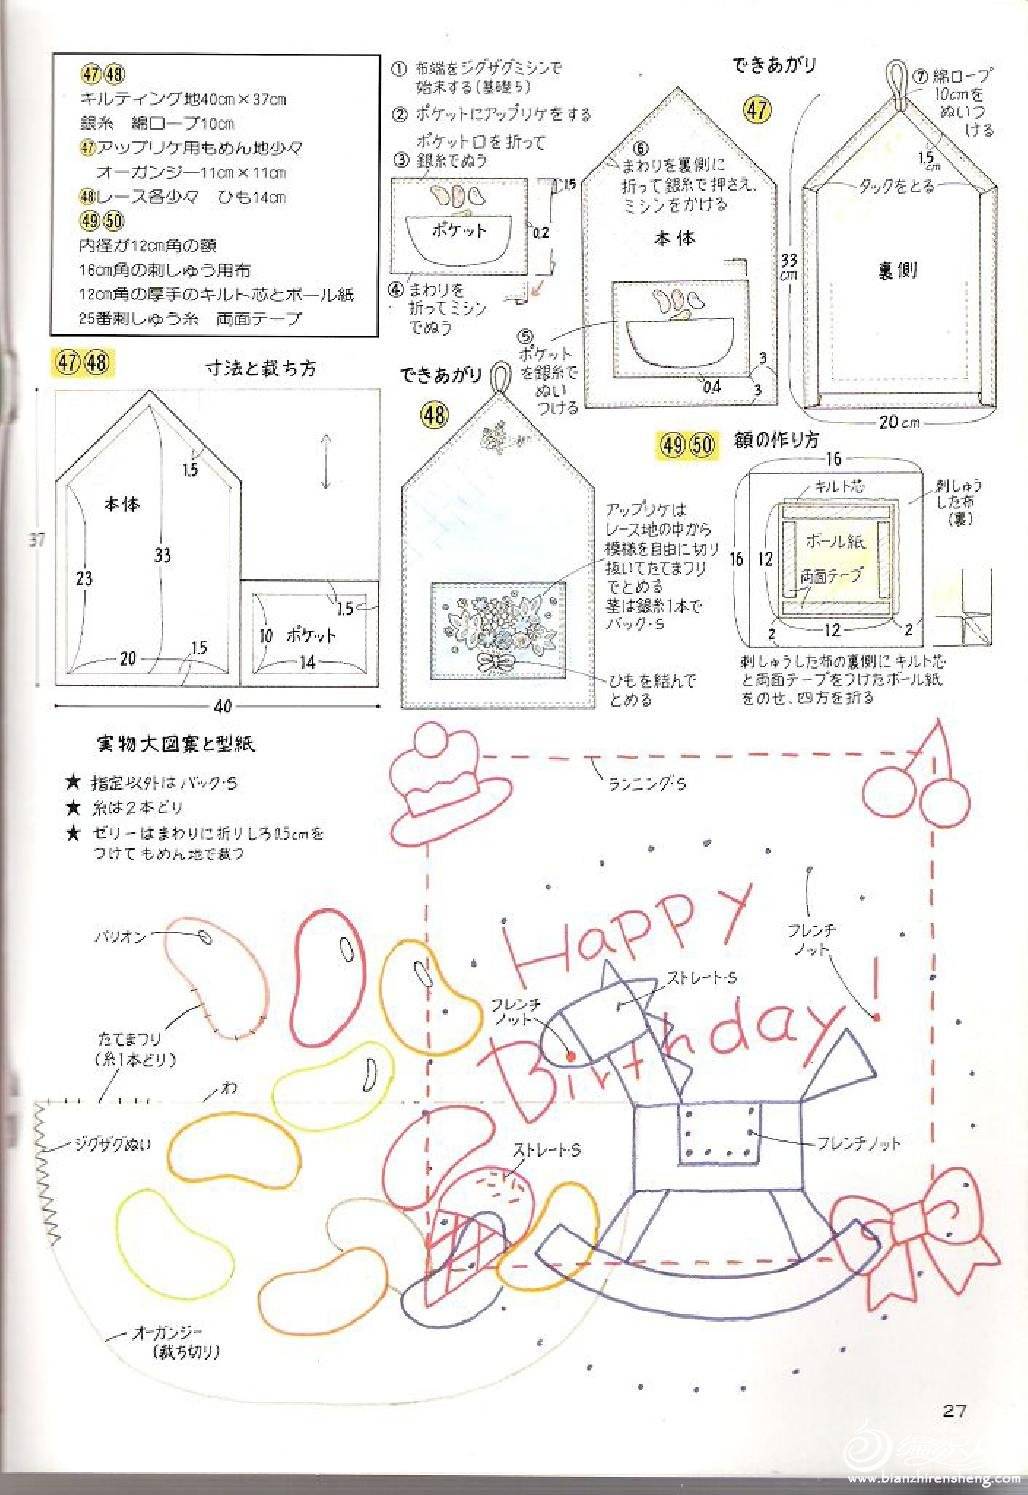 ㊼㊽
キルティング地40cm×37cm
銀糸 綿ロープ10cm
㊼アップリケ用もめん地少々
オーガンジー11cm×11cm
㊽レース各少々 ひも14cm
㊾㊿
内径が12cm角の額
16cm角の刺しゅう用布
12cm角の厚手のキルト芯とボール紙
25番刺しゅう糸 両面テープ
① 布端をジグザグミシンで
始末する(基礎5)
② ポケットにアップリケをする
③ ポケット口を折って
銀糸でぬう
ポケット
1.5
0.2
④ まわりを
折ってミシン
でぬう
できあがり
㊼
⑥
まわりを裏側に
折って銀糸で押さえ、
ミシンをかける
本体
⑤
ポケット
を銀糸で
ぬい
つける
0.4
3
3
33
cm
⑦ 綿ロープ
10cmを
ぬいつ
ける
1.5
cm
タックをとる
裏側
20cm
㊼㊽
寸法と裁ち方
本体
1.5
37
23
33
20
1.5
1.5
10
ポケット
14
40
できあがり
㊽
アップリケは
レース地の中から
模様を自由に切り
抜いてたてまつり
でとめる
茎は銀糸1本で
バック・S
ひもを結んで
とめる
㊾㊿ 額の作り方
16
キルト芯
刺しゅう
した布
(裏)
16
12
ボール紙
両面テープ
2
12
2
刺しゅうした布の裏側にキルト芯
と両面テープをつけたボール紙
をのせ、四方を折る
実物大図案と型紙
★ 指定以外はバック・S
★ 糸は2本どり
★ ゼリーはまわりに折りしろ0.5cmを
つけてもめん地で裁つ
ランニング・S
バリオン
Happy
Birthday!
フレンチ
ノット
ストレート・S
フレンチ
ノット
たてまつり
(糸1本どり)
わ
ジグザグぬい
ストレート・S
フレンチノット
オーガンジー
(裁ち切り)
27
www.bianzhirensheng.com